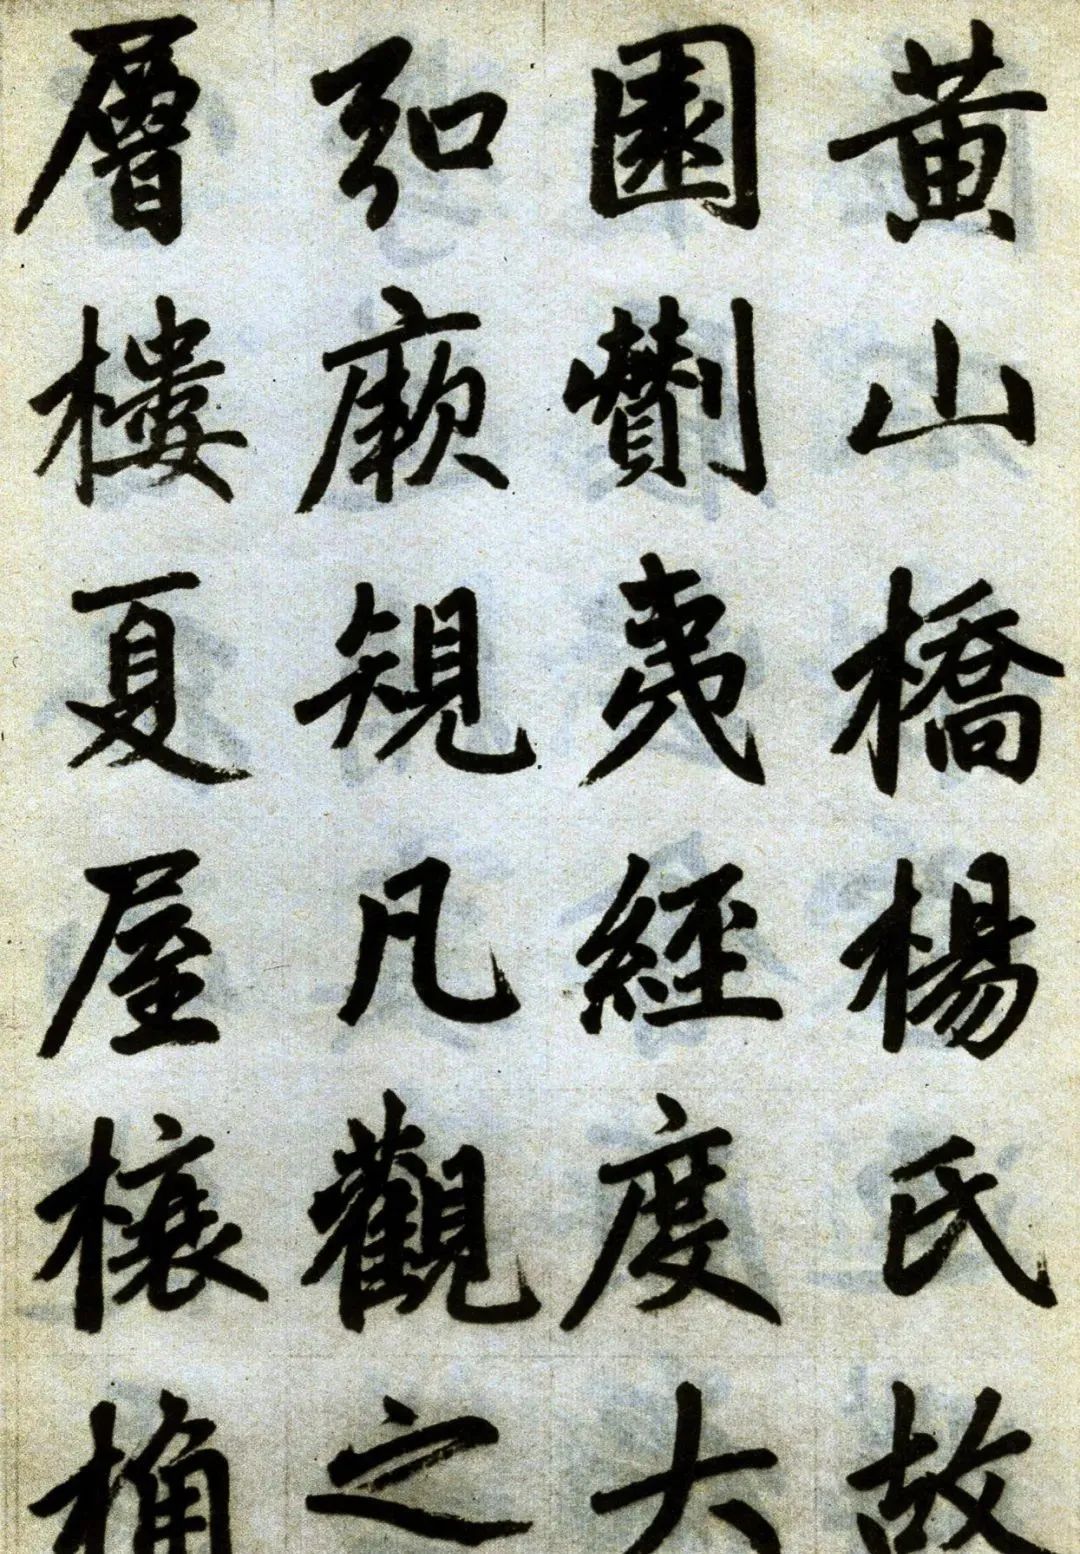 黄山橋楊氏故
園劗夷經度大
弘厥規凡觀之
層樓夏屋榱桷